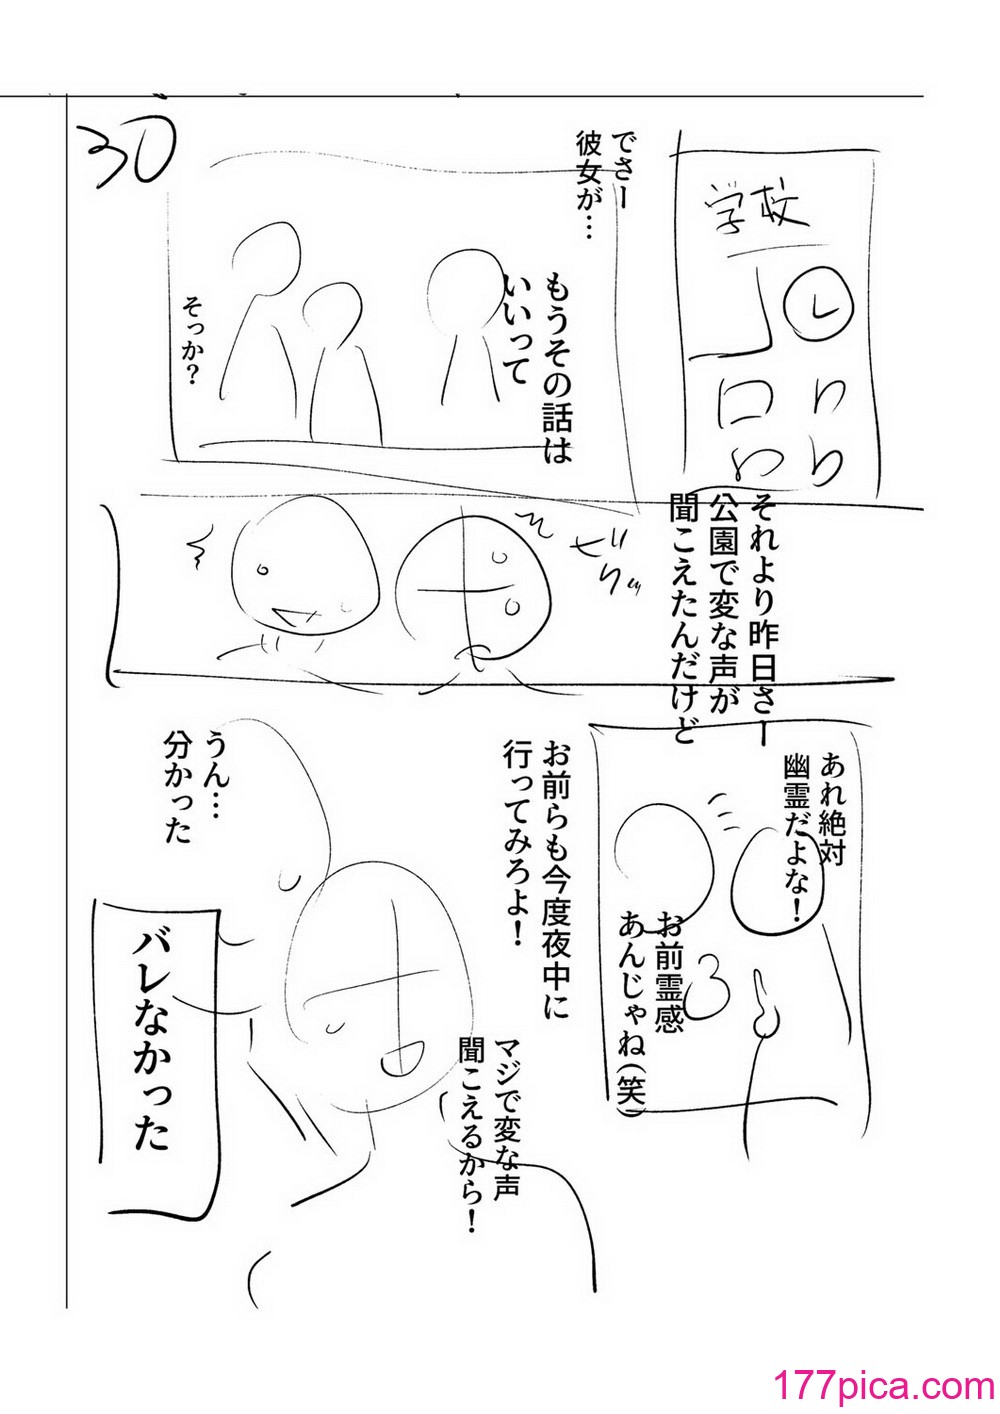 30
学校
でさー
彼女が…
もうその話は
いいって
そっか?
ビリ
それより昨日さー
公園で変な声が
聞こえたんだけど
あれ絶対
幽霊だよな!
お前霊感
あんじゃね(笑)
お前らも今度夜中に
行ってみろよ!
マジで変な声
聞こえるから!
うん…
分かった
バレなかった
177pica.com